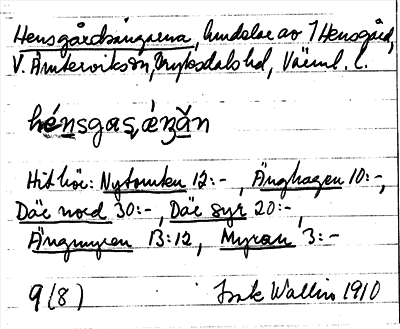 Hensgårdsängarna, Andelar av 7 Hensgård,
V. Ämterviks sn, Fryksdals hd, Värml. l.
hénsgas, ä́ŋăn
Hit hör: Nytomten 12:-, Änghagen 10:-,
Där nord 30:-, Där syr 20:-,
Ängmyren 13:12, Myran 3:-
9(8) Wallin 1910